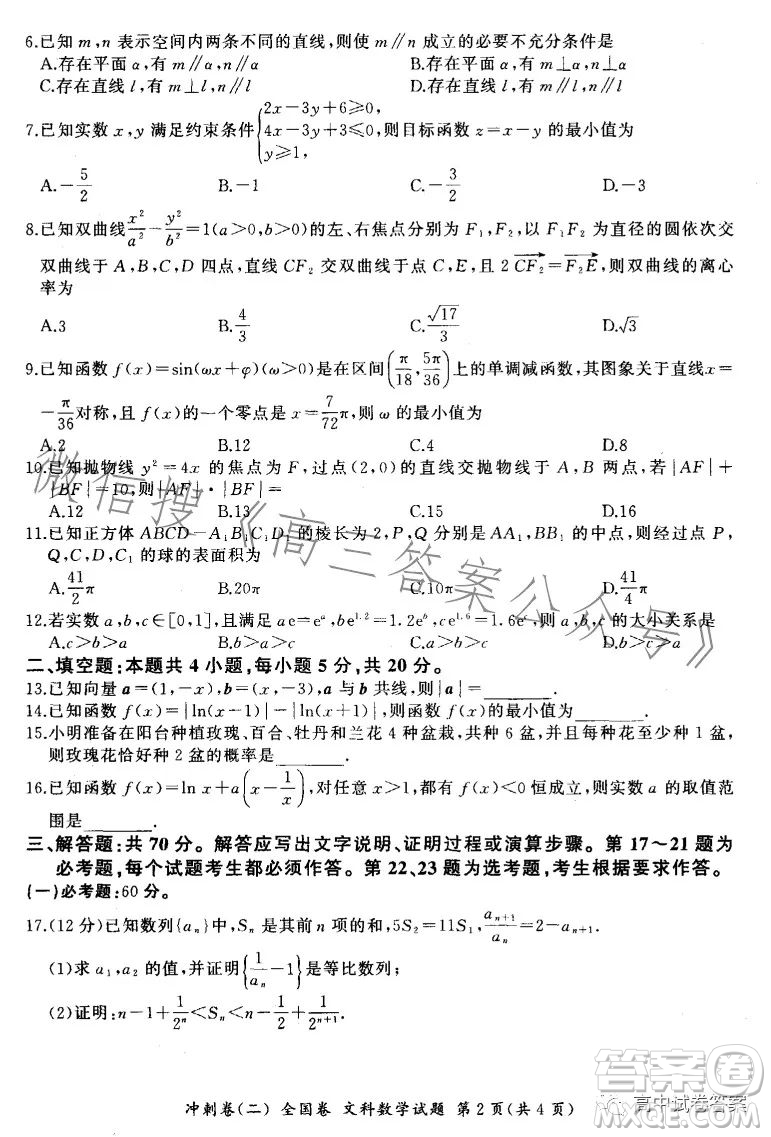 6.已知 m,n 表示空间内两条不同的直线,则使 m∥n 成立的必要不充分条件是
A.存在平面 α,有 m∥α,n∥α B.存在平面 α,有 m⊥α,n⊥α
C.存在直线 l,有 m⊥l,n⊥l D.存在直线 l,有 m∥l,n∥l
7.已知实数 x,y 满足约束条件{2x-3y+6≥0, 4x-3y+3≤0, y≥1, 则目标函数 z=x-y 的最小值为
A.-5/2 B.-1 C.-3/2 D.-3
8.已知双曲线x²/a²-y²/b²=1(a>0,b>0)的左、右焦点分别为 F₁,F₂,以 F₁F₂ 为直径的圆依次交
双曲线于 A,B,C,D 四点,直线 CF₂ 交双曲线于点 C,E,且 2CF₂→=F₂E→,则双曲线的离心
率为
A.3 B.4/3 C.√17/3 D.√3
9.已知函数 f(x)=sin(ωx+φ)(ω>0)是在区间(π/18,5π/36)上的单调减函数,其图象关于直线x=
-π/36对称,且 f(x)的一个零点是 x=7/72π,则 ω 的最小值为
A.2 B.12 C.4 D.8
10.已知抛物线 y²=4x 的焦点为 F,过点(2,0)的直线交抛物线于 A,B 两点,若|AF|+
|BF|=10,则|AF|·|BF|=
A.12 B.13 C.15 D.16
11.已知正方体 ABCD-A₁B₁C₁D₁ 的棱长为 2,P,Q 分别是 AA₁,BB₁ 的中点,则经过点 P,
Q,C,D,C₁ 的球的表面积为
A.41/2π B.20π C.10π D.41/4π
12.若实数 a,b,c∈[0,1],且满足 ae=eᵃ,be¹·²=1.2eᵇ,ce¹·⁶=1.6eᶜ,则 a,b,c 的大小关系是
A.c>b>a B.b>a>c C.a>b>c D.b>c>a
二、填空题:本题共 4 小题,每小题 5 分,共 20 分。
13.已知向量 a=(1,-x),b=(x,-3),a 与 b 共线,则|a|=______.
14.已知函数 f(x)=|ln(x-1)|-|ln(x+1)|,则函数 f(x)的最小值为______.
15.小明准备在阳台种植玫瑰、百合、牡丹和兰花 4 种盆栽,共种 6 盆,并且每种至少种 1 盆,
则玫瑰花恰好种 2 盆的概率是______.
16.已知函数 f(x)=ln x+a(x-1/x),对任意 x>1,都有 f(x)<0 恒成立,则实数 a 的取值范
围是______.
三、解答题:共 70 分。解答应写出文字说明、证明过程或演算步骤。第 17~21 题为
必考题,每个试题考生都必须作答。第 22、23 题为选考题,考生根据要求作答。
(一)必考题:60 分。
17.(12 分)已知数列{aₙ}中,Sₙ 是其前 n 项的和,5S₂=11S₁,aₙ₊₁/aₙ=2-aₙ₊₁.
(1)求 a₁,a₂ 的值,并证明{1/aₙ-1}是等比数列;
(2)证明:n-1+1/2ⁿ<Sₙ<n-1/2+1/2ⁿ⁺¹.
冲刺卷(二) 全国卷 文科数学试题 第 2 页(共 4 页)
微信搜《高三答案公众号》
答案圈
高中试卷答案